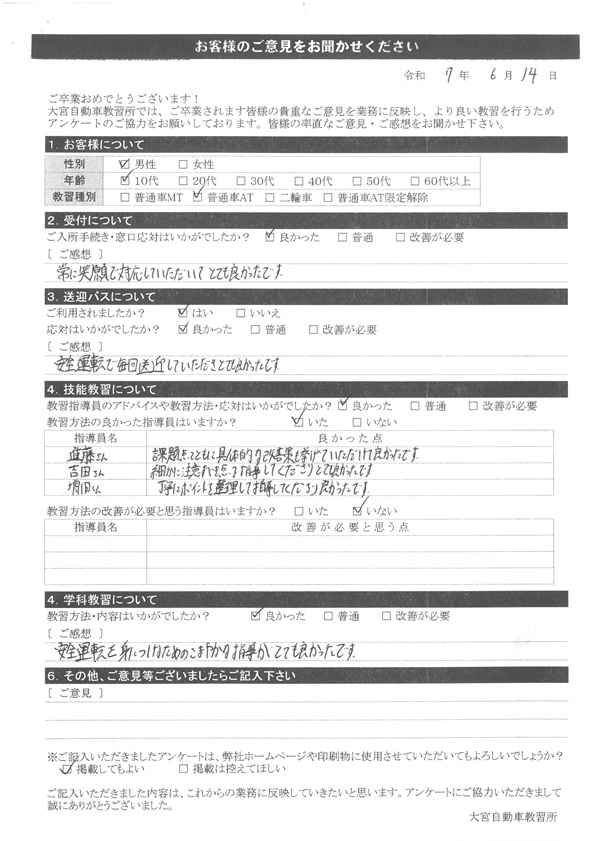 お客様のご意見をお聞かせください
令和 7 年 6 月 14 日
ご卒業おめでとうございます！
大宮自動車教習所では、ご卒業されます皆様の貴重なご意見を業務に反映し、より良い教習を行うため
アンケートのご協力をお願いしております。皆様の率直なご意見・ご感想をお聞かせ下さい。
1. お客様について
性別 ☑ 男性 □ 女性
年齢 ☑ 10代 □ 20代 □ 30代 □ 40代 □ 50代 □ 60代以上
教習種別 □ 普通車MT ☑ 普通車AT □ 二輪車 □ 普通車AT限定解除
2. 受付について
ご入所手続き・窓口応対はいかがでしたか？ ☑ 良かった □ 普通 □ 改善が必要
[ ご感想 ]
常に笑顔で対応していただいてとても良かったです。
3. 送迎バスについて
ご利用されましたか？ ☑ はい □ いいえ
応対はいかがでしたか？ ☑ 良かった □ 普通 □ 改善が必要
[ ご感想 ]
安全運転で毎回送迎していただきとても良かったです。
4. 技能教習について
教習指導員のアドバイスや教習方法・応対はいかがでしたか？ ☑ 良かった □ 普通 □ 改善が必要
教習方法の良かった指導員はいますか？ ☑ いた □ いない
指導員名 良かった点
進藤さん 課題点とともに具体的な改善案も挙げていただけて良かったです。
吉田さん 細かに注意すべき点を指導してくださりとても良かったです。
増田さん 丁寧にポイントを整理して指導してくださり良かったです。
教習方法の改善が必要と思う指導員はいますか？ □ いた ☑ いない
指導員名 改善が必要と思う点
4. 学科教習について
教習方法・内容はいかがでしたか？ ☑ 良かった □ 普通 □ 改善が必要
[ ご感想 ]
安全運転を身につけるためのこまやかな指導がとても良かったです。
6. その他、ご意見等ございましたらご記入下さい
[ ご意見 ]
※ご記入いただきましたアンケートは、弊社ホームページや印刷物に使用させていただいてもよろしいでしょうか？
☑ 掲載してもよい □ 掲載は控えてほしい
ご記入いただきました内容は、これからの業務に反映していきたいと思います。アンケートにご協力いただきまして
誠にありがとうございました。
大宮自動車教習所